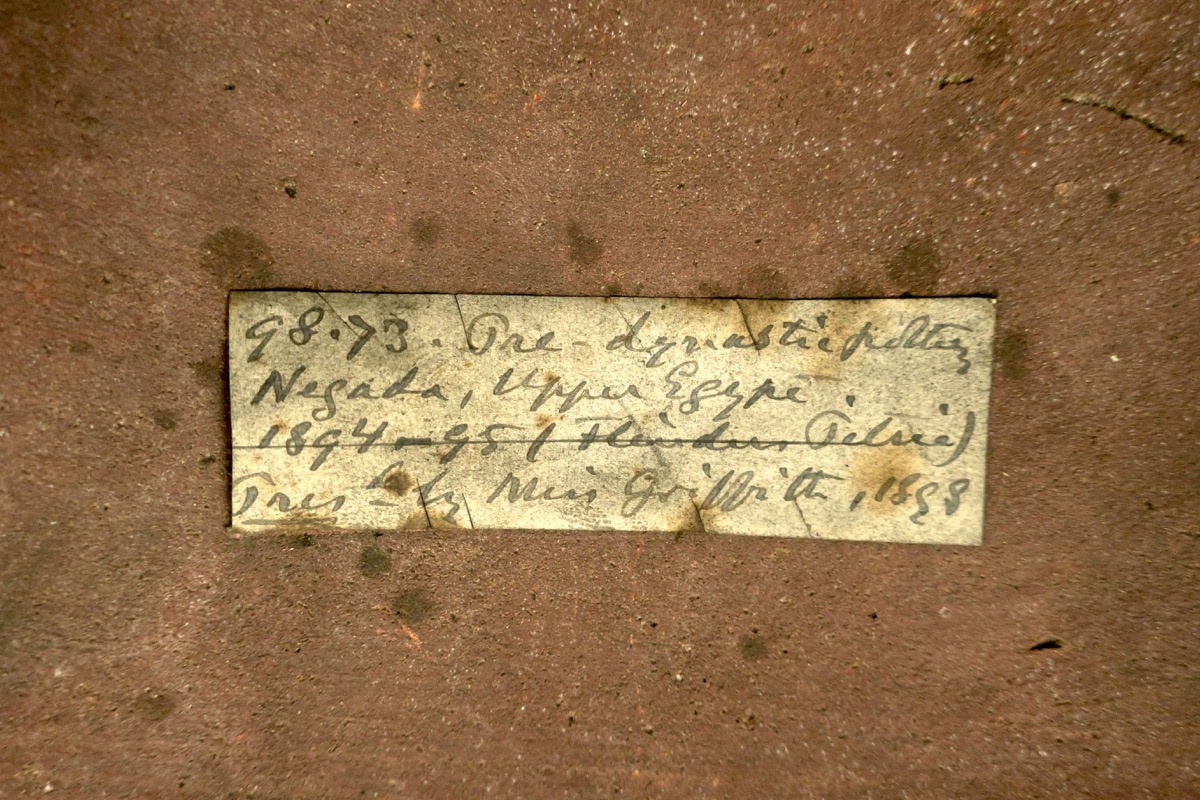 98.73. Pre-dynastic pottery
Negada, Upper Egypt.
1894-95 (Flinders Petrie)
Presd by Miss Griffith, 1898